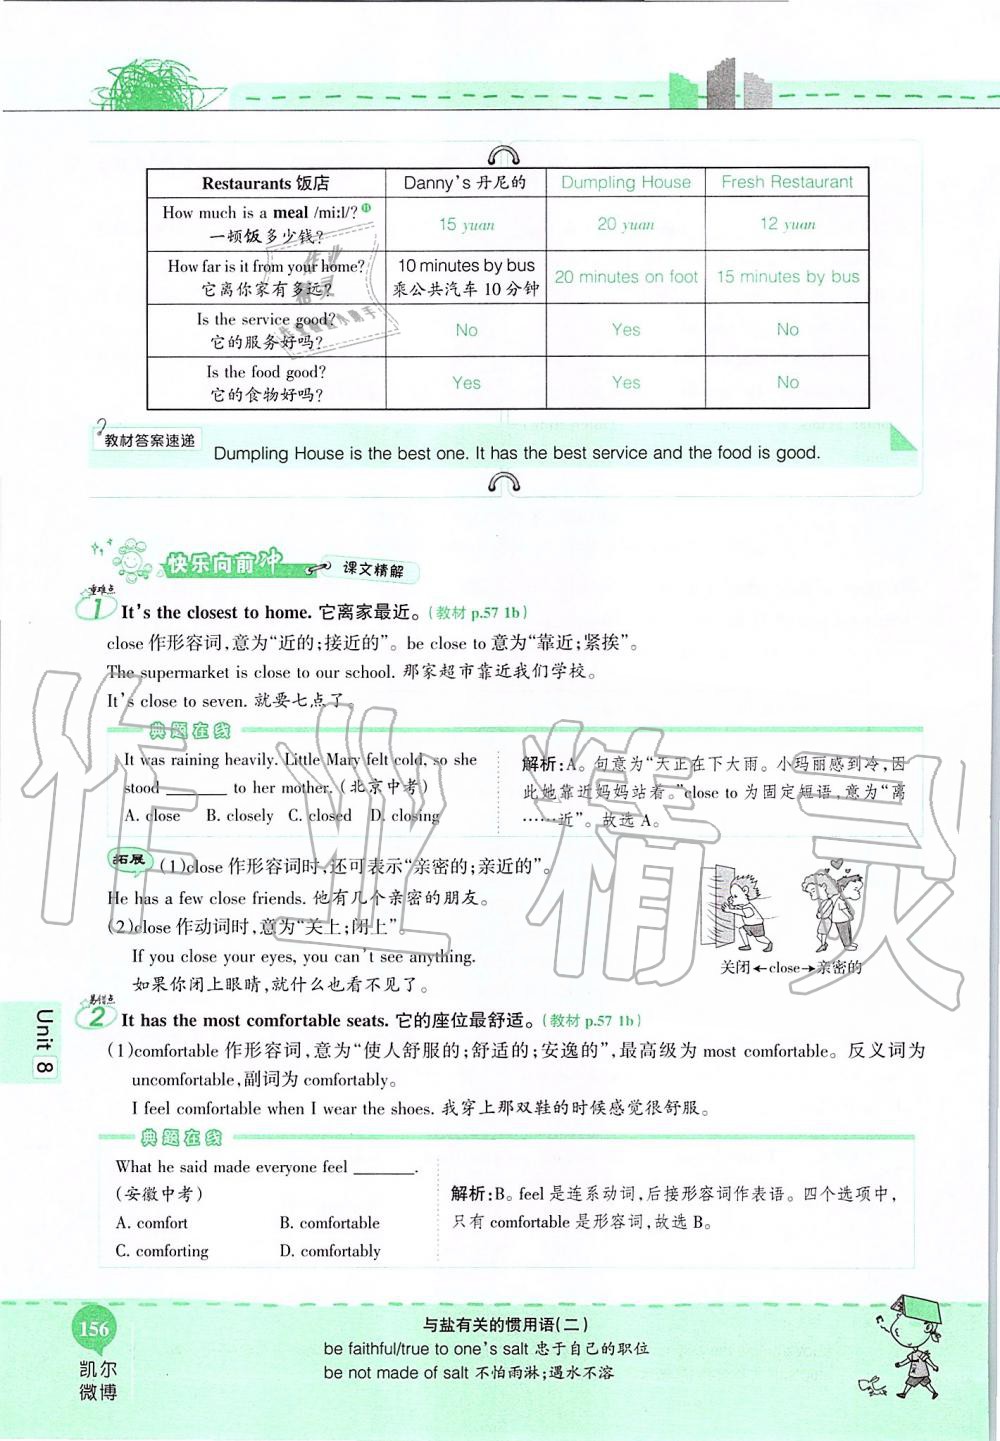 Restaurants 饭店 Danny's 丹尼的 Dumpling House Fresh Restaurant
How much is a meal /miːl/? ⑪
一顿饭多少钱? 15 yuan 20 yuan 12 yuan
How far is it from your home? 10 minutes by bus 20 minutes on foot 15 minutes by bus
它离你家有多远? 乘公共汽车 10 分钟
Is the service good? No Yes No
它的服务好吗?
Is the food good? Yes Yes No
它的食物好吗?
教材答案速递
Dumpling House is the best one. It has the best service and the food is good.
快乐向前冲 课文精解
重难点
1 It's the closest to home. 它离家最近。(教材 p.57 1b)
close 作形容词,意为“近的;接近的”。be close to 意为“靠近;紧挨”。
The supermarket is close to our school. 那家超市靠近我们学校。
It's close to seven. 就要七点了。
典题在线
It was raining heavily. Little Mary felt cold, so she
stood ________ to her mother. (北京中考)
A. close B. closely C. closed D. closing
解析:A。句意为“天正在下大雨。小玛丽感到冷,因
此她靠近妈妈站着。”close to 为固定短语,意为“离
……近”。故选 A。
拓展 (1)close 作形容词时,还可表示“亲密的;亲近的”。
He has a few close friends. 他有几个亲密的朋友。
(2)close 作动词时,意为“关上;闭上”。
If you close your eyes, you can't see anything.
如果你闭上眼睛,就什么也看不见了。
关闭←close→亲密的
易错点
2 It has the most comfortable seats. 它的座位最舒适。(教材 p.57 1b)
(1)comfortable 作形容词,意为“使人舒服的;舒适的;安逸的”,最高级为 most comfortable。反义词为
uncomfortable,副词为 comfortably。
I feel comfortable when I wear the shoes. 我穿上那双鞋的时候感觉很舒服。
典题在线
What he said made everyone feel ________.
(安徽中考)
A. comfort B. comfortable
C. comforting D. comfortably
解析:B。feel 是连系动词,后接形容词作表语。四个选项中,
只有 comfortable 是形容词,故选 B。
Unit 8
156
凯尔
微博
与盐有关的惯用语(二)
be faithful/true to one's salt 忠于自己的职位
be not made of salt 不怕雨淋;遇水不溶
作业精灵